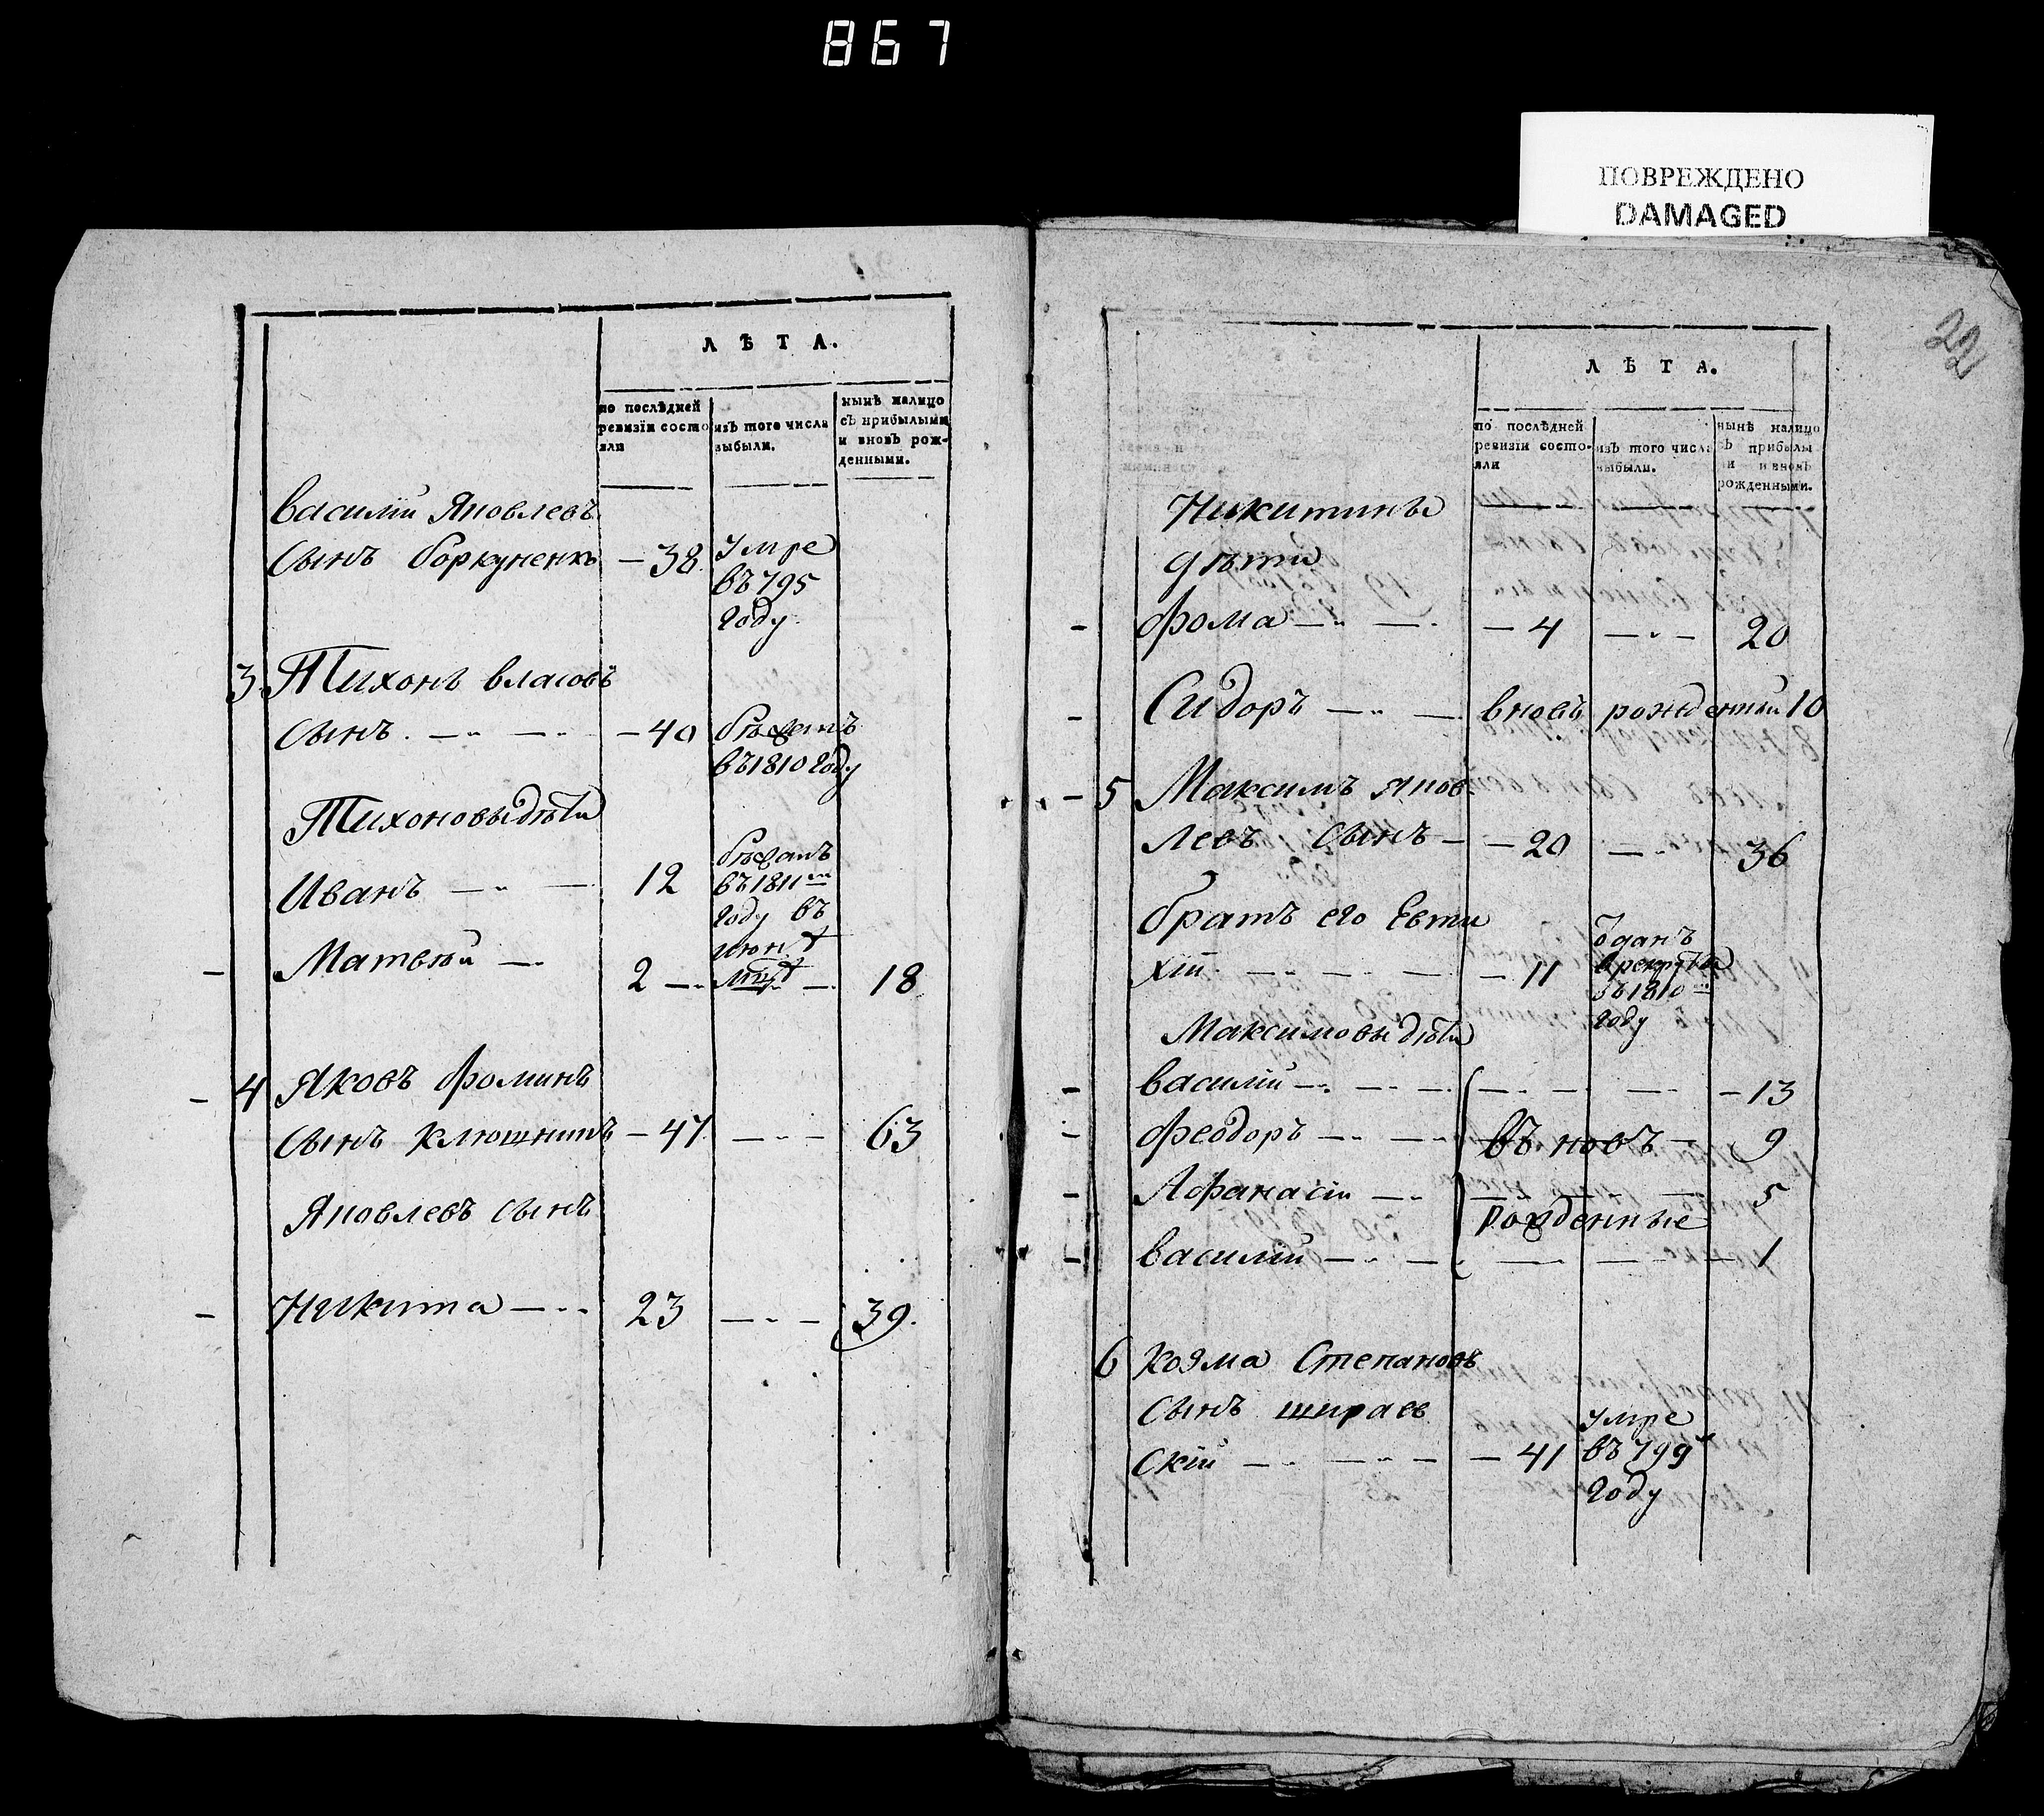 867
ПОВРЕЖДЕНО
DAMAGED
ЛѢТА.
по послѣдней
ревизіи состо
яли
изъ того числа
выбыли.
нынѣ налицо
съ прибылыми
и вновь рож-
денными.
Василій Яковлевъ
сынъ боркуненко — 38 умре
въ 795
году
3. Тихонъ власовъ
сынъ — 40 бѣжалъ
въ 1810 году
Тихоновы дѣти
Иванъ 12 бѣжалъ
въ 1811м
году въ
июнѣ
мцѣ
Матвѣй 2 18
4 Яковъ Фоминъ
сынъ Клюшникъ — 47 63
Яковлевъ сынъ
Никита 23 39.
22
ЛѢТА.
по послѣдней
ревизіи состо-
яли
изъ того числа
выбыли.
нынѣ налицо
съ прибылы
ми и вновь
рожденными.
Никитины
дѣти
Фома — 4 20
Сидоръ вновь рожденный 10
5 Максимъ яков
левъ сынъ — 20 36
братъ его Евти
хій — 11 одданъ
в рекруты
въ 1810м
году
Максимовы дѣти
василій — 13
Феодоръ въ новъ 9
Афанасій 5
рожденные
василій 1
6 Козма Степановъ
сынъ шираев
скій — 41 умре
въ 799м
году